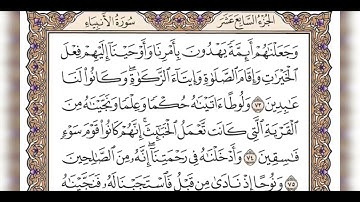 الجزء السابع عشر سورة الأنبياء
وَجَعَلْنَٰهُمْ أَئِمَّةً يَهْدُونَ بِأَمْرِنَا وَأَوْحَيْنَآ إِلَيْهِمْ فِعْلَ
ٱلْخَيْرَٰتِ وَإِقَامَ ٱلصَّلَوٰةِ وَإِيتَآءَ ٱلزَّكَوٰةِ ۖ وَكَانُوا۟ لَنَا
عَٰبِدِينَ ٧٣ وَلُوطًا ءَاتَيْنَٰهُ حُكْمًا وَعِلْمًا وَنَجَّيْنَٰهُ مِنَ
ٱلْقَرْيَةِ ٱلَّتِى كَانَت تَّعْمَلُ ٱلْخَبَٰٓئِثَ ۗ إِنَّهُمْ كَانُوا۟ قَوْمَ سَوْءٍ
فَٰسِقِينَ ٧٤ وَأَدْخَلْنَٰهُ فِى رَحْمَتِنَآ ۖ إِنَّهُۥ مِنَ ٱلصَّٰلِحِينَ
٧٥ وَنُوحًا إِذْ نَادَىٰ مِن قَبْلُ فَٱسْتَجَبْنَا لَهُۥ فَنَجَّيْنَٰهُ